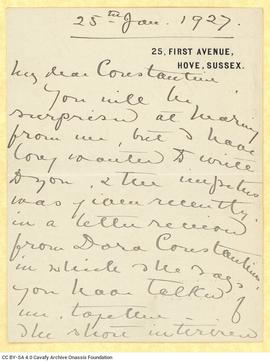 25th Jan. 1927.
25, FIRST AVENUE,
HOVE, SUSSEX.
My dear Constantine
You will be
surprised at hearing
from me, but I have
long wanted to write
to you, & the impetus
was given recently
in a letter received
from Dora Constantinos
in which she says
you have talked of
me together —
She short interview
CC BY-SA 4.0 Cavafy Archive Onassis Foundation